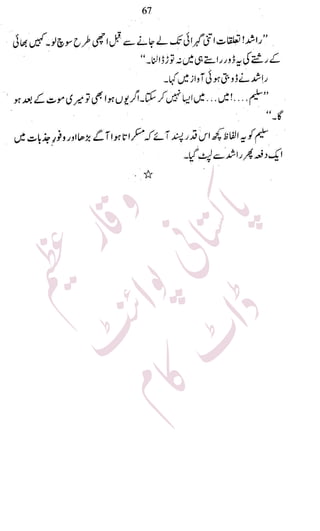 67
”راشد! تعلقات اتنی گہرائی تک لے جانے سے قبل اچھی طرح سوچ لو۔ کہیں بھائی
کے رشتے کی یہ ڈور راستے میں ہی نہ توڑ ڈالنا۔“
راشد نے ڈوبتی ہوئی آواز میں کہا۔
”سلیم....! میں ... میں ایسا نہیں کر سکتا۔ اگر یوں ہوا بھی تو میری موت کے بعد ہو
گا۔“
سلیم کو یہ الفاظ کچھ اس قدر پسند آئے کہ مسکراتا ہوا آگے بڑھا اور وفورِ جذبات میں
ایک دفعہ پھر راشد سے لپٹ گیا۔
☆
وقار عظیم
پاکستانی پوائنٹ
ڈاٹ کام